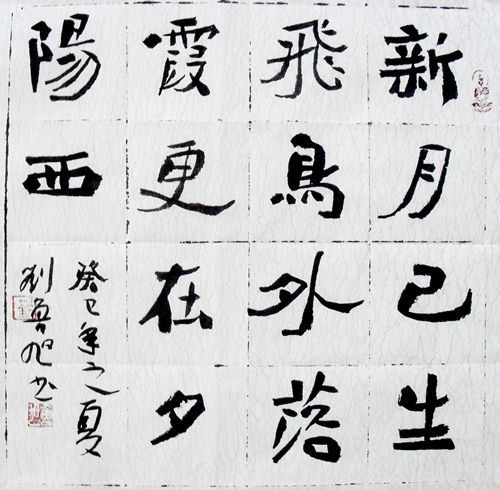 新月已生
飛鳥外落
霞更在夕
陽西
癸巳年之夏
劉魯旭书